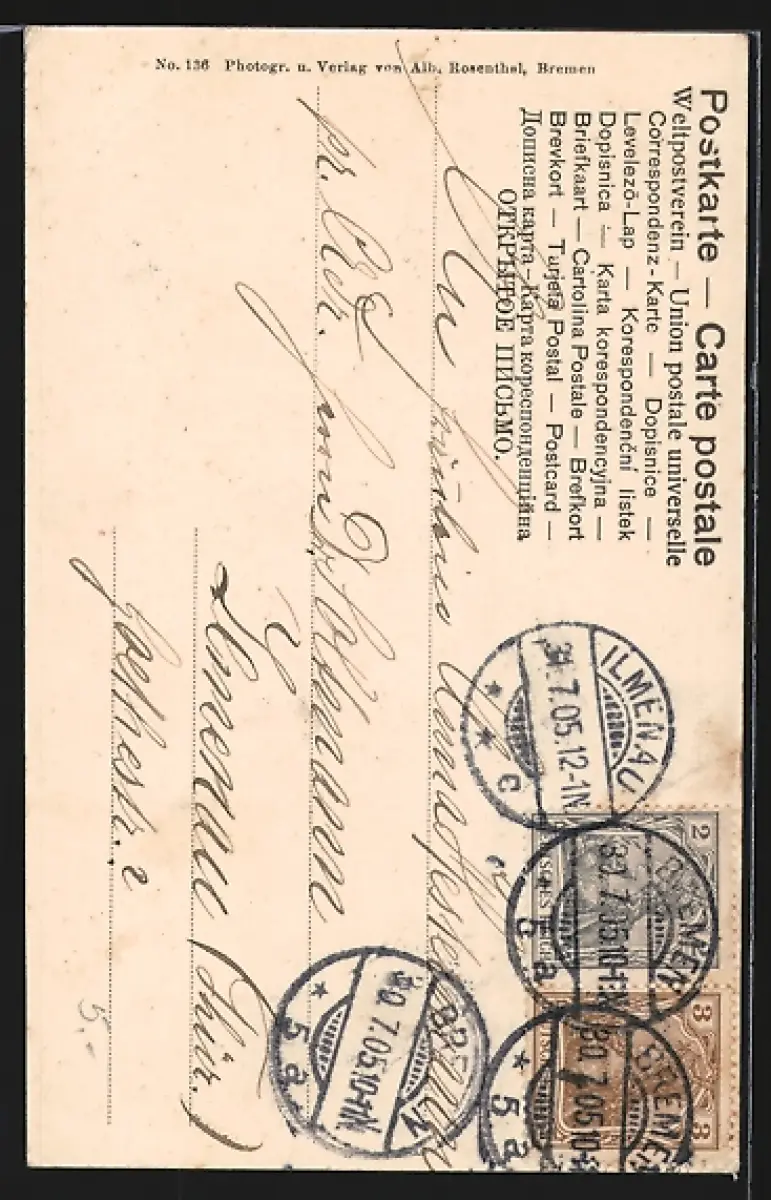 Postkarte — Carte postale
Weltpostverein — Union postale universelle
Correspondenz-Karte — Dopisnice —
Levelező-Lap — Korespondenční listek
Dopisnica — Karta korespondencyjna —
Briefkaart — Cartolina Postale — Brefkort
Brevkort — Tarjeta Postal — Postcard —
Дописна карта — Карта кореспонденційна
ОТКРЫТОЕ ПИСЬМО.
No. 136 Photogr. u. Verlag von Alb. Rosenthal, Bremen
An
pr. Adr.
Ilmenau (Thür.)
Goethestr. 2
5.-
ILMENAU
7.05.12-1N
* * c
2
BREMEN
30.7.05.10-
5 a
3 3
BREMEN
30.7.05.10-
* 5 a
BREMEN
30.7.05.10-11N
* 5 a